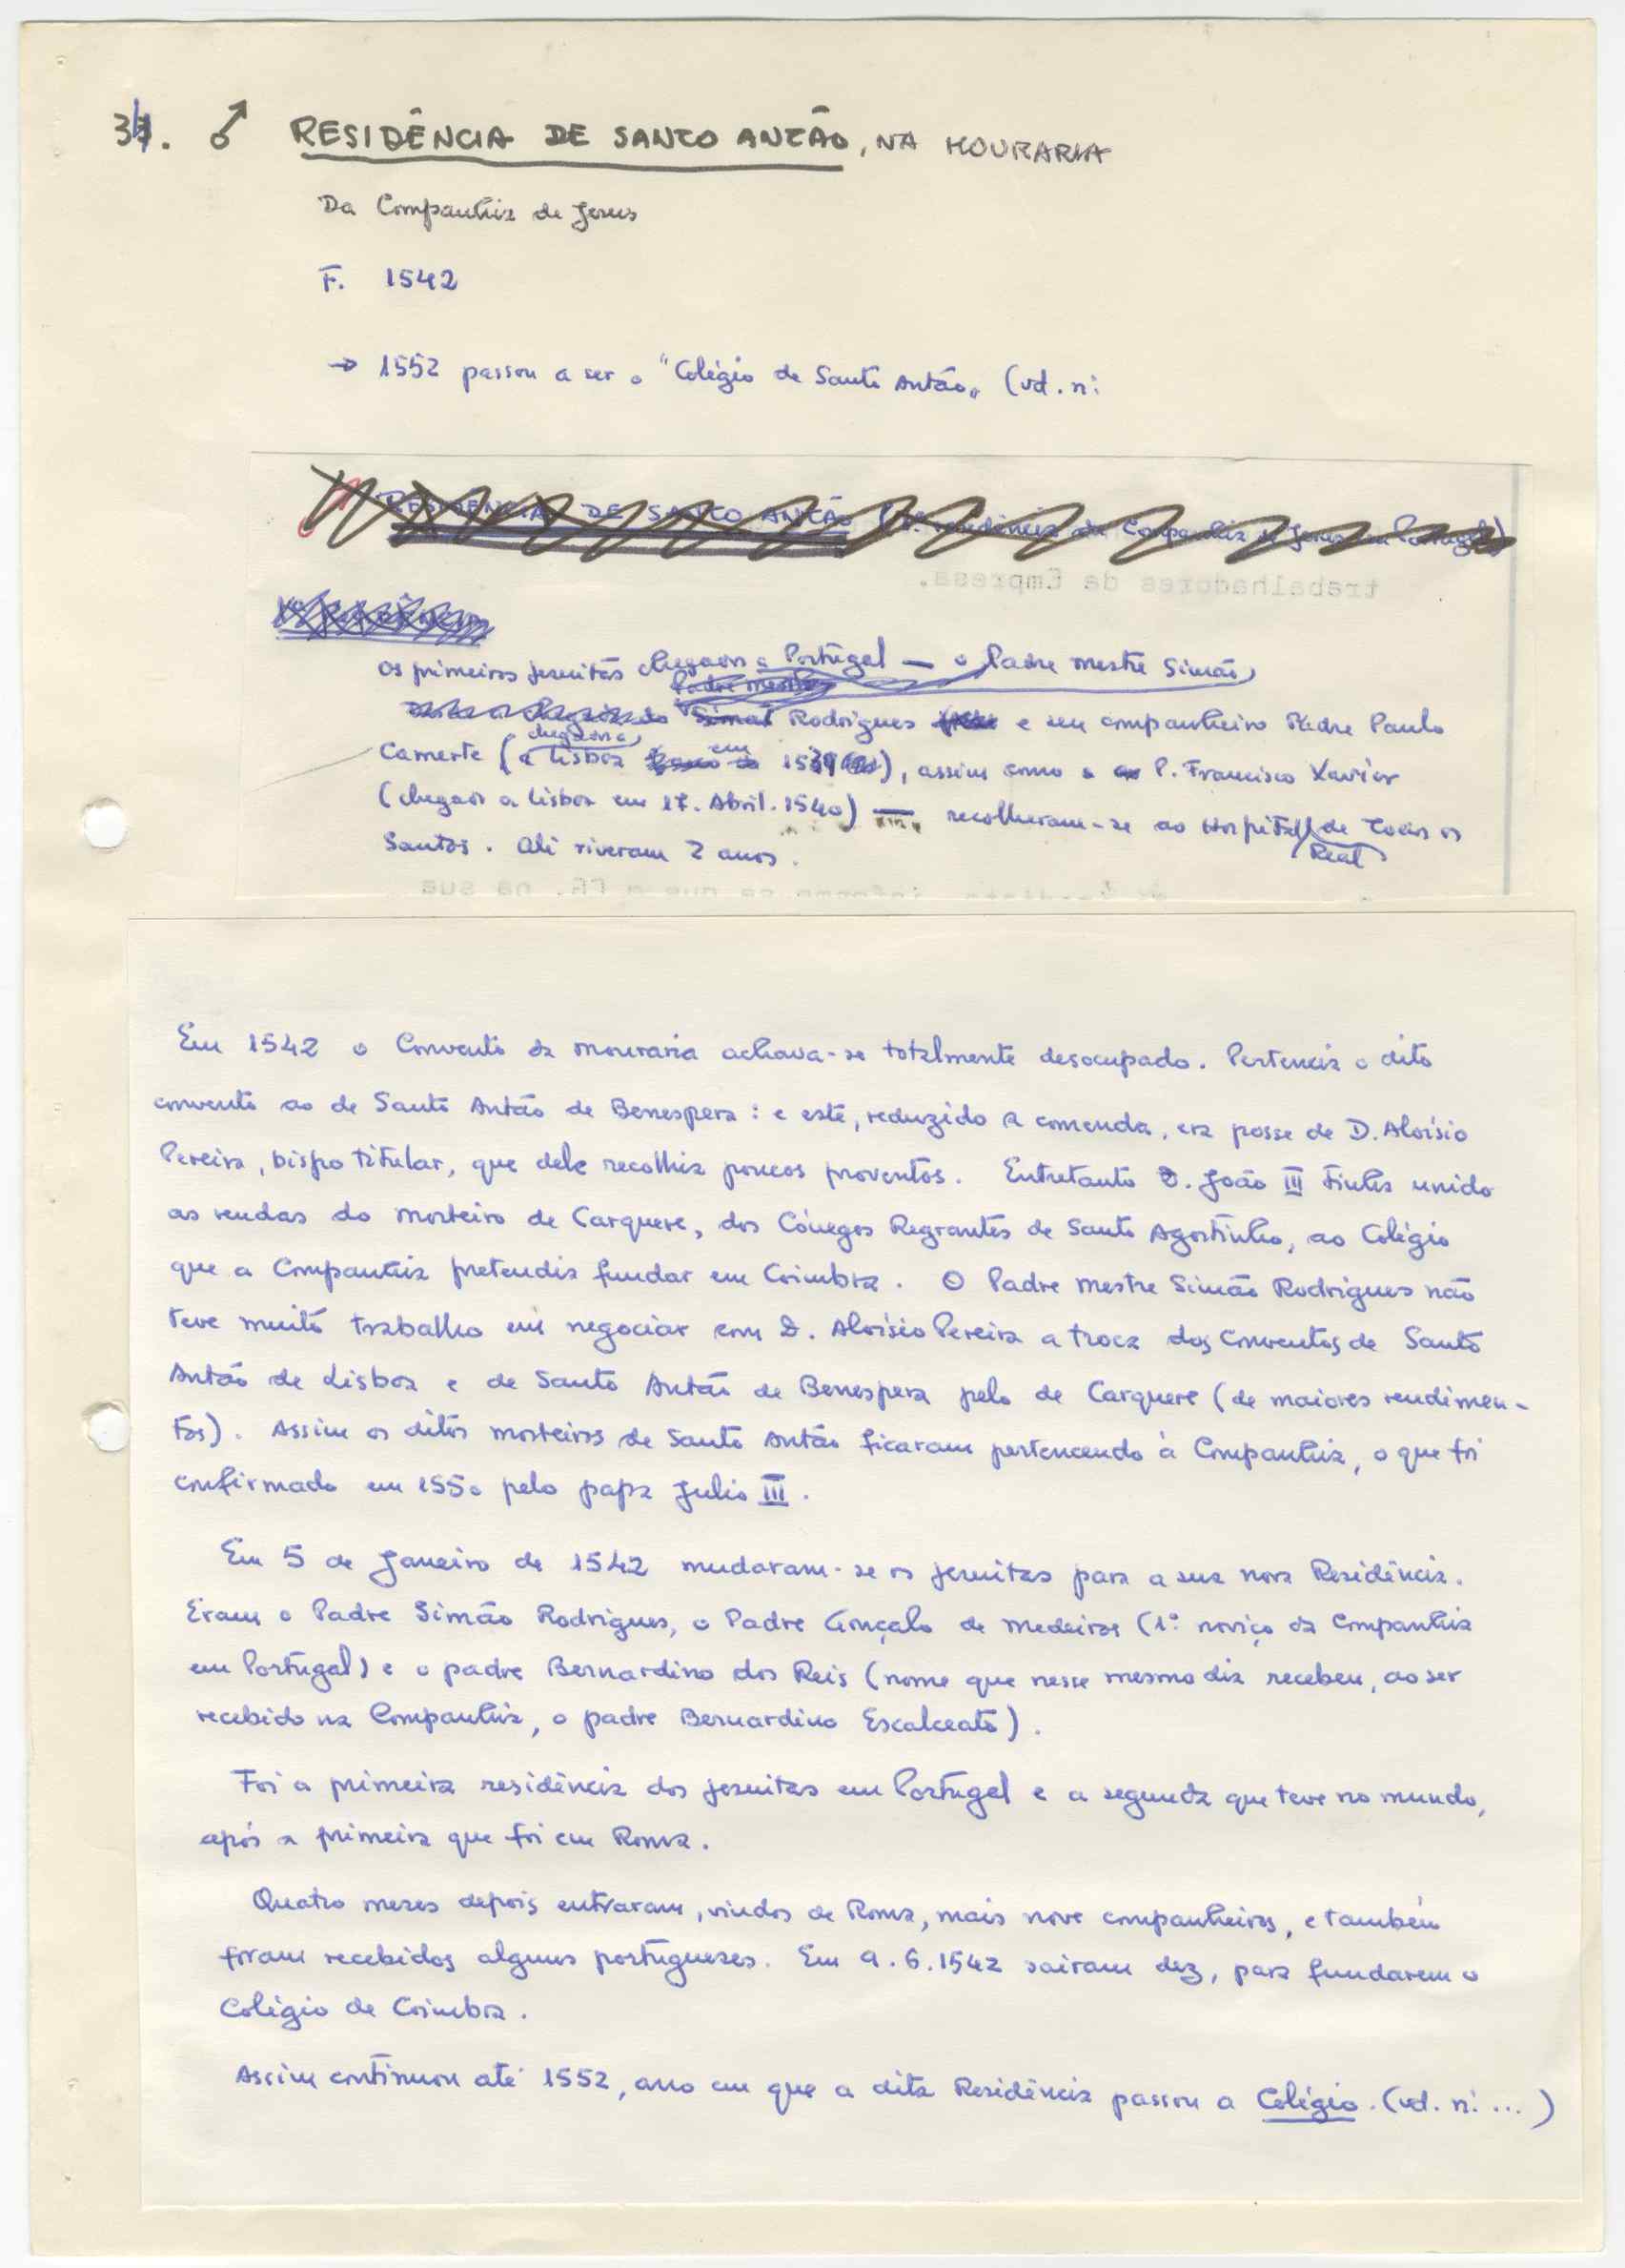 34. ♂ RESIDÊNCIA DE SANTO ANTÃO, NA MOURARIA
Da Companhia de Jesus
F. 1542
→ 1552 passou a ser o "Colégio de Santo Antão" (vd. nº
RESIDÊNCIA DE SANTO ANTÃO (1ª residência da Companhia de Jesus em Portugal)
trabalhadores da Empresa.
Os primeiros jesuitas chegados a Portugal — o Padre Mestre Simão
Rodrigues e seu companheiro Padre Paulo
Camerte (chegados a Lisboa em 1539), assim como o P. Francisco Xavier
(chegado a Lisboa em 17. Abril. 1540) — recolheram-se ao Hospital Real de Todos os
Santos. Ali viveram 2 anos.
Em 1542 o Convento da Mouraria achava-se totalmente desocupado. Pertencia o dito
convento ao de Santo Antão de Benespera: e este, reduzido a comenda, era posse de D. Aloísio
Pereira, bispo titular, que dele recolhia poucos proventos. Entretanto D. João III tinha unido
as rendas do mosteiro de Carquere, dos Cónegos Regrantes de Santo Agostinho, ao Colégio
que a Companhia pretendia fundar em Coimbra. O Padre Mestre Simão Rodrigues não
teve muito trabalho em negociar com D. Aloísio Pereira a troca dos Conventos de Santo
Antão de Lisboa e de Santo Antão de Benespera pelo de Carquere (de maiores rendimen-
tos). Assim os ditos mosteiros de Santo Antão ficaram pertencendo à Companhia, o que foi
confirmado em 1550 pelo papa Julio III.
Em 5 de Janeiro de 1542 mudaram-se os jesuitas para a sua nova Residência.
Eram o Padre Simão Rodrigues, o Padre Gonçalo de Medeiros (1º noviço da Companhia
em Portugal) e o padre Bernardino dos Reis (nome que nesse mesmo dia recebeu, ao ser
recebido na Companhia, o padre Bernardino Escalceato).
Foi a primeira residência dos jesuitas em Portugal e a segunda que teve no mundo,
após a primeira que foi em Roma.
Quatro meses depois entraram, vindos de Roma, mais nove companheiros, e também
foram recebidos alguns portugueses. Em 9.6.1542 sairam dez, para fundarem o
Colégio de Coimbra.
Assim continuou até 1552, ano em que a dita Residência passou a Colégio. (vd. nº ...)